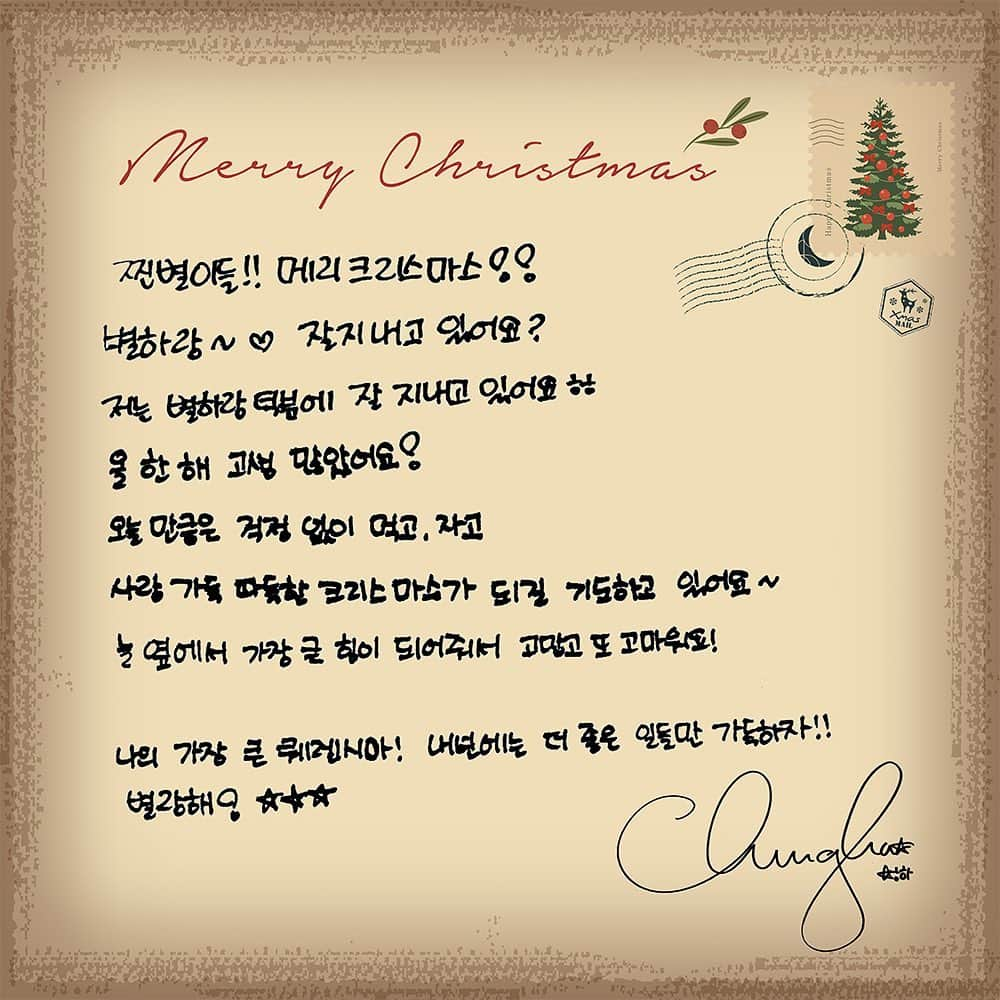 Merry Christmas
Happy Christmas
Merry Christmas
Xmas
MAIL
찐별이들!! 메리크리스마스!!
별하랑~♡ 잘지내고 있어요?
저는 별하랑 덕붐에 잘 지내고 있어요ㅎㅎ
올 한 해 고생 많았어요!
오늘 만큼은 걱정 없이 먹고, 자고
사랑 가득 따듯한 크리스마스가 되길 기도하고 있어요~
늘 옆에서 가장 큰 힘이 되어줘서 고맙고 또 고마워요!
나의 가장 큰 퀘렌시아! 내년에는 더 좋은 일들만 가득하자!!
별랑해! ☆☆☆
Chungha☆
☆청하